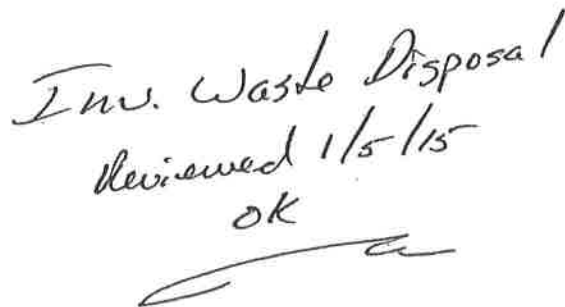 Inv. Waste Disposal
Reviewed 1/5/15
OK